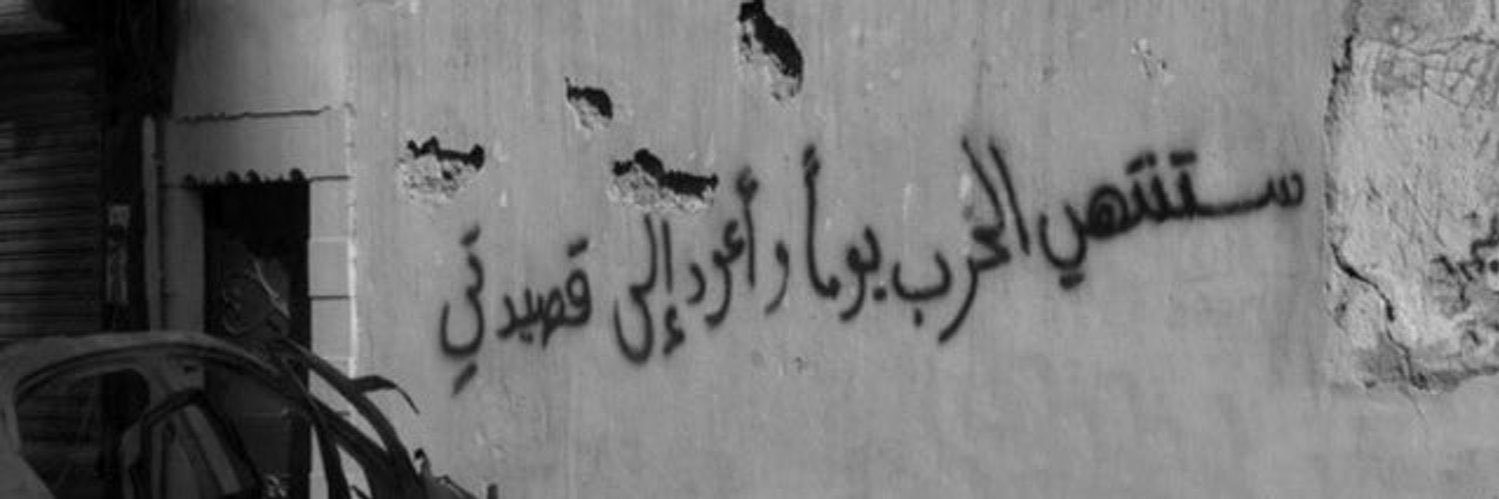 ستنتهي الحرب يوماً و أعود إلى قصيدتي